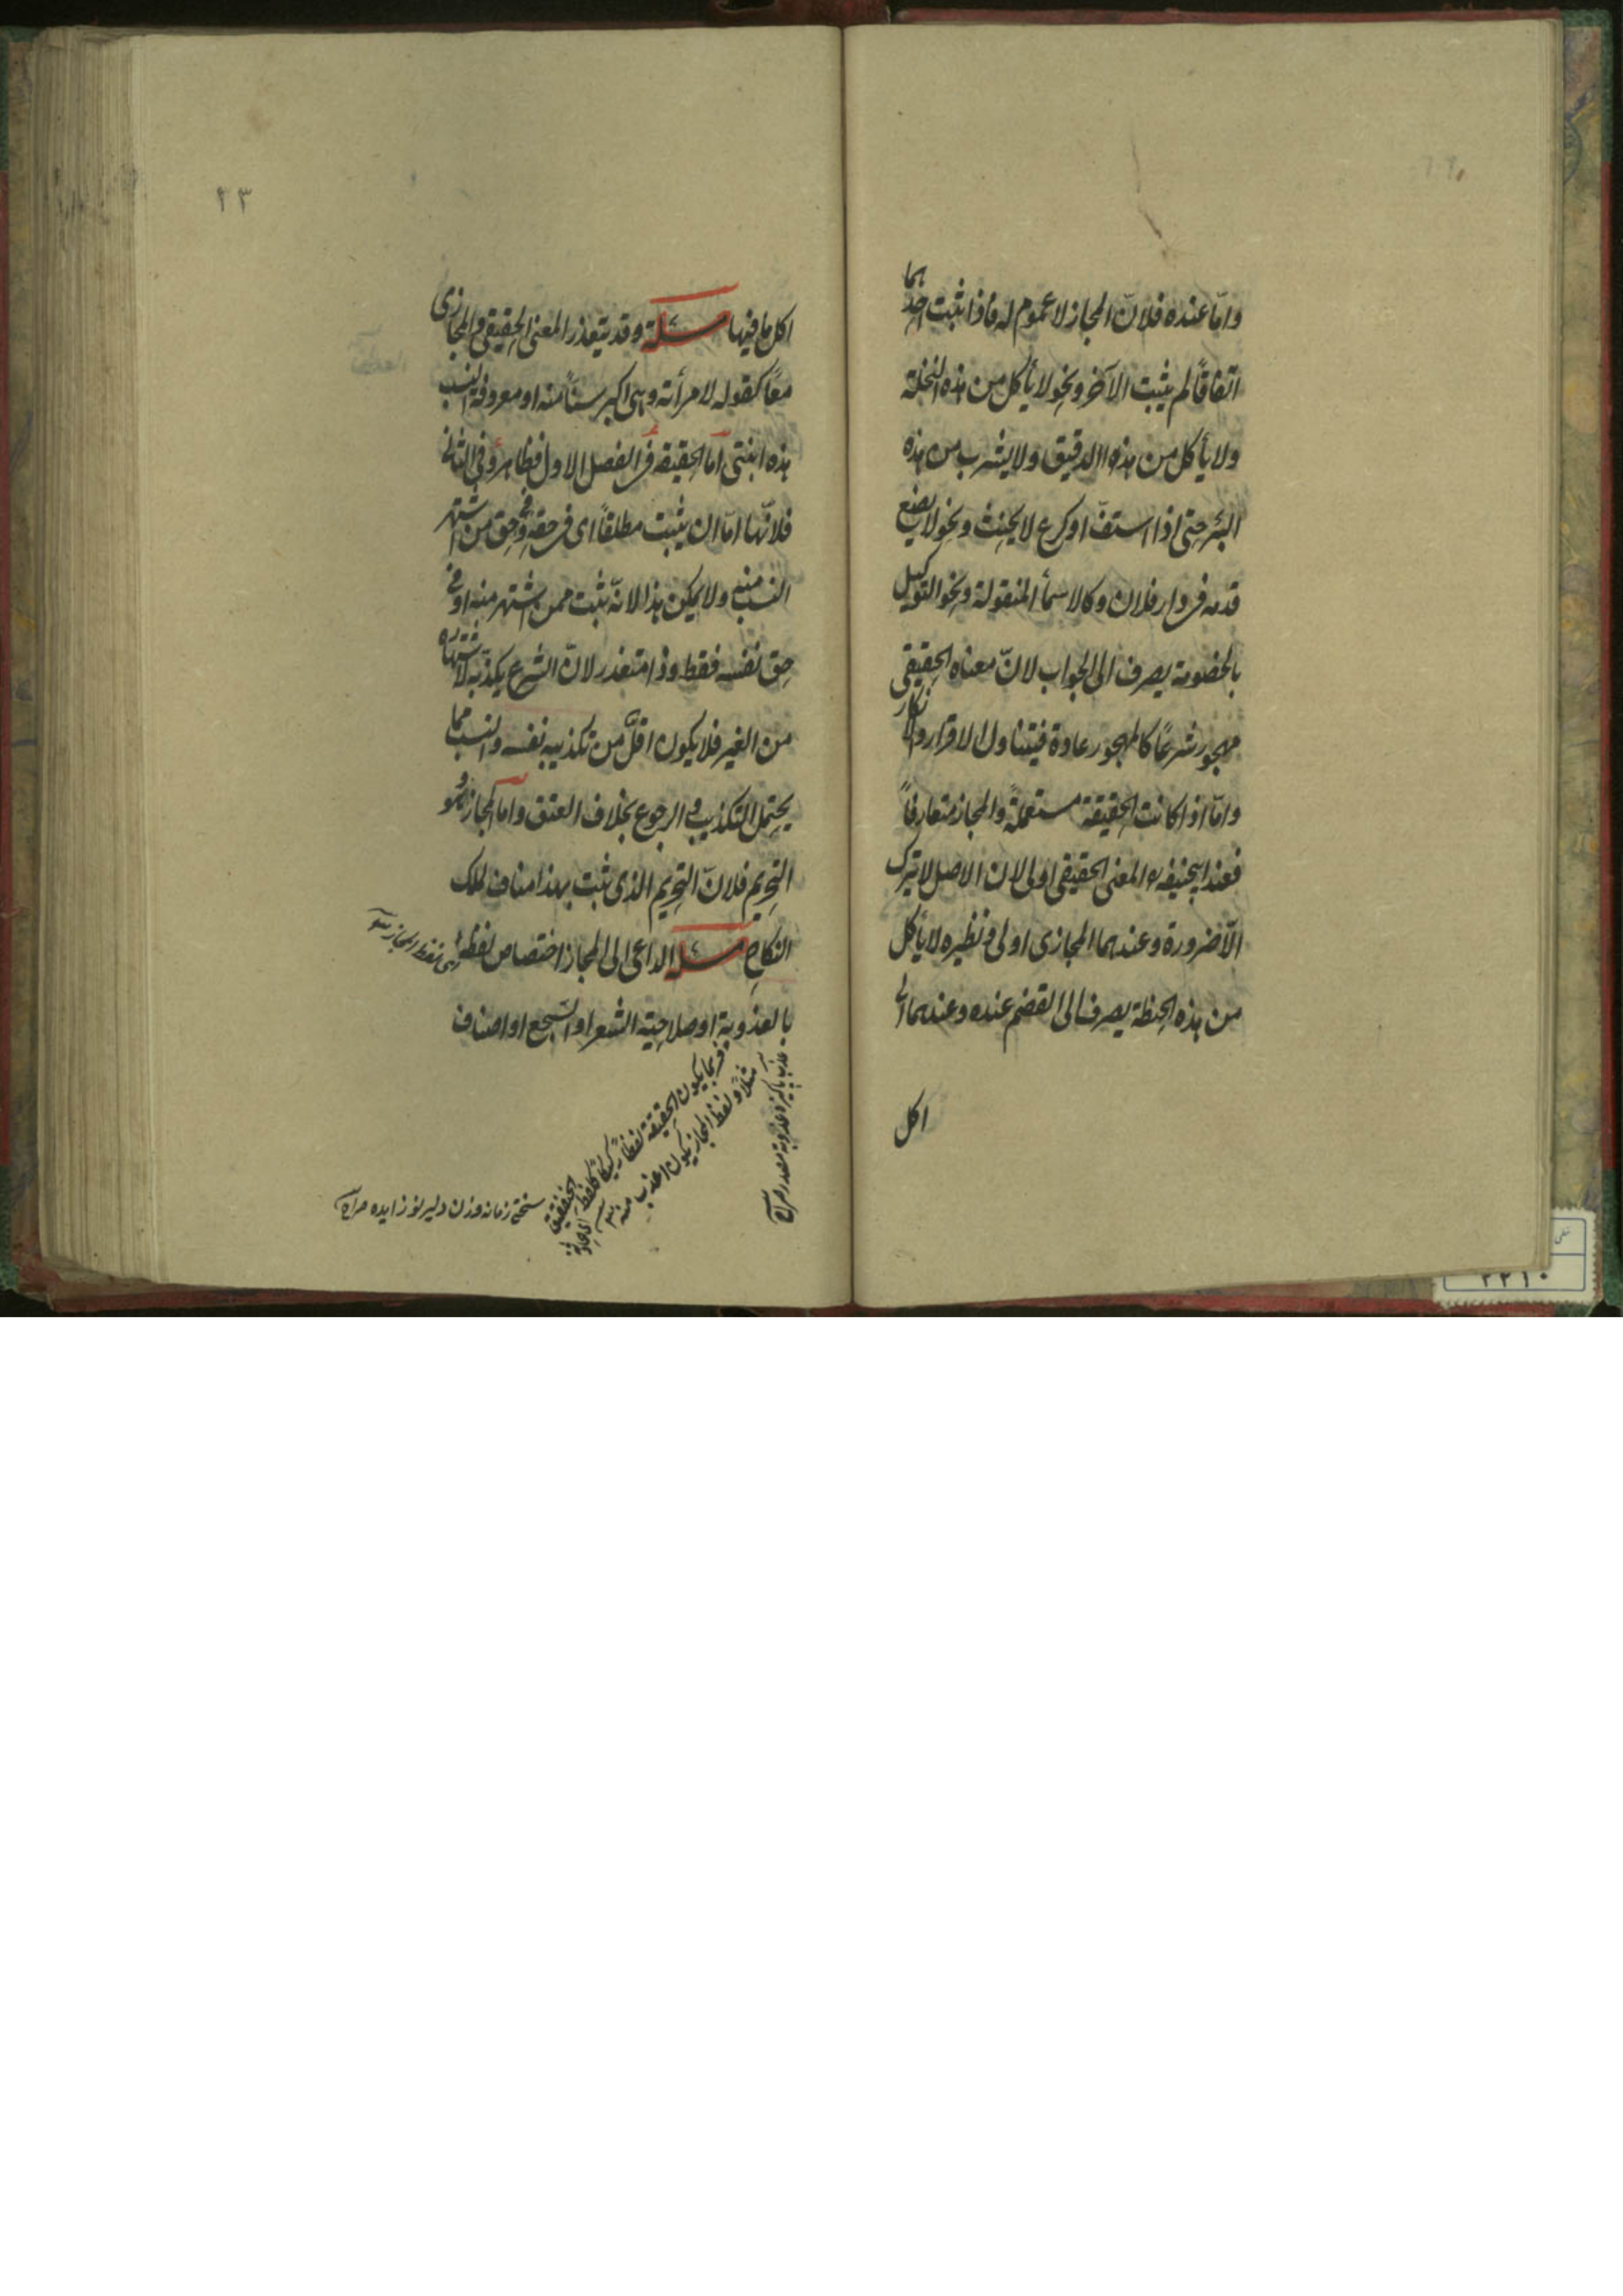 واما عنده فلانّ المجاز لا عموم له فاذا ثبت احدهما
اتفاقاً لم يثبت الآخر ونحو لا يأكل من هذه النخلة
ولا يأكل من هذه الدقيق ولا يشرب من هذه
البئر حتى اذا استفّ او كرع لا يحنث ونحو لا يضع
قدمه فى دار فلان وكالاسمأ المنقولة ونحو التوكيل
بالخصومة يصرف الى الجواب لانّ معناه الحقيقى
مهجور شرعًا كالمهجور عادة فيتناول الاقرار والانكار
وامّا اذا كانت الحقيقة مستعملةً والمجاز متعارفاً
فعند ابيحنيفه المعنى الحقيقى اولى لان الاصل لا يترك
الّا ضرورة وعندهما المجازى اولى ونظيره لا يأكل
من هذه الحنطة يصرف الى القضم عنده وعندهما الى
اكل
٢٣
اكل ما فيها مسئلة وقد يتعذر المعنى الحقيقى والمجازى
معًا كقوله لامرأته وهى اكبر سنّاً منه او معروفة النسب
هذه ابنتى امّا الحقيقة فى الفصل الاول فظاهر وفى الثانى
فلانّها امّا ان يثبت مطلقاً اى فى حقه وفى حق من اشتهر
النسب منه ولا يمكن هذا لانّه يثبت ممن اشتهر منه او فى
حق نفسه فقط وذا متعذر لانّ الشرع يكذّبه لاشتهاره
من الغير فلا يكون اقلّ من تكذيبه نفسه والنسب مما
يحتمل التكذيب والرجوع بخلاف العتق وامّا المجاز وهو
التحريم فلانّ التحريم الذى ثبت بهذا مناف لملك
النكاح مسئلة الداعى الى المجاز اختصاص لفظه
اى لفظ المجاز
بالعذوبة او صلاحيته الشعر او السجع او اصناف
فربما يكون الحقيقة لفظاً ركيكاً كلفظ الخنفقيق
مثلاً ولفظ المجاز يكون اعذب منه